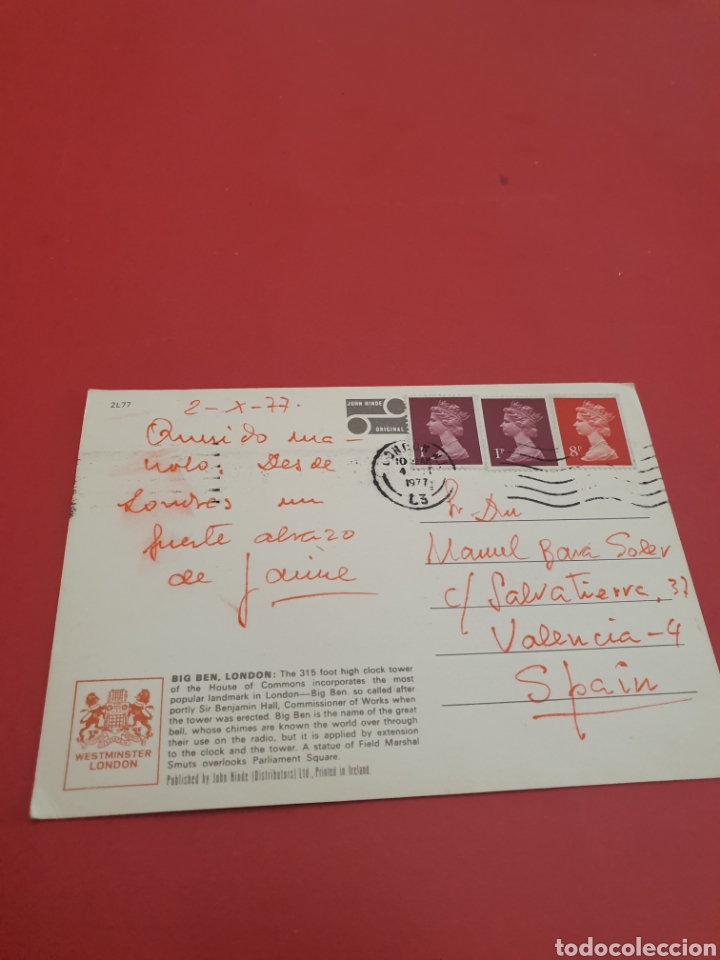 2L77
2-X-77.
JOHN HINDE
ORIGINAL
1P
1P
8P
LONDON
1977
L3
Querido ma-
nolo: Desde
Londres un
fuerte abrazo
de Jaime
Sr. Don
Manuel Bava Soler
c/ Salvatierra, 37
Valencia-4
Spain
WESTMINSTER
LONDON
BIG BEN, LONDON: The 315 foot high clock tower
of the House of Commons incorporates the most
popular landmark in London—Big Ben, so called after
portly Sir Benjamin Hall, Commissioner of Works when
the tower was erected. Big Ben is the name of the great
bell, whose chimes are known the world over through
their use on the radio, but it is applied by extension
to the clock and the tower. A statue of Field Marshal
Smuts overlooks Parliament Square.
Published by John Hinde (Distributors) Ltd., Printed in Ireland.
todocoleccion